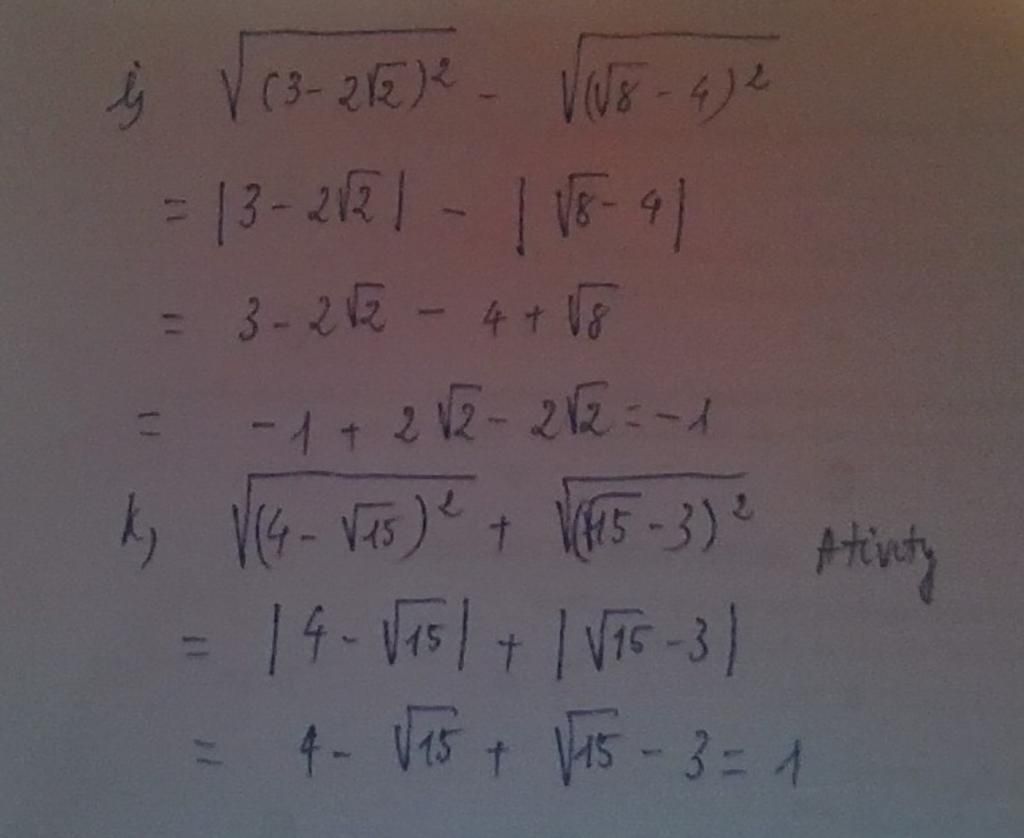 j, √(3-2√2)² - √(√8-4)²
= |3-2√2| - |√8-4|
= 3-2√2 - 4+√8
= -1+2√2-2√2=-1
k, √(4-√15)² + √(√15-3)²
Ativity
= |4-√15| + |√15-3|
= 4-√15 + √15-3=1